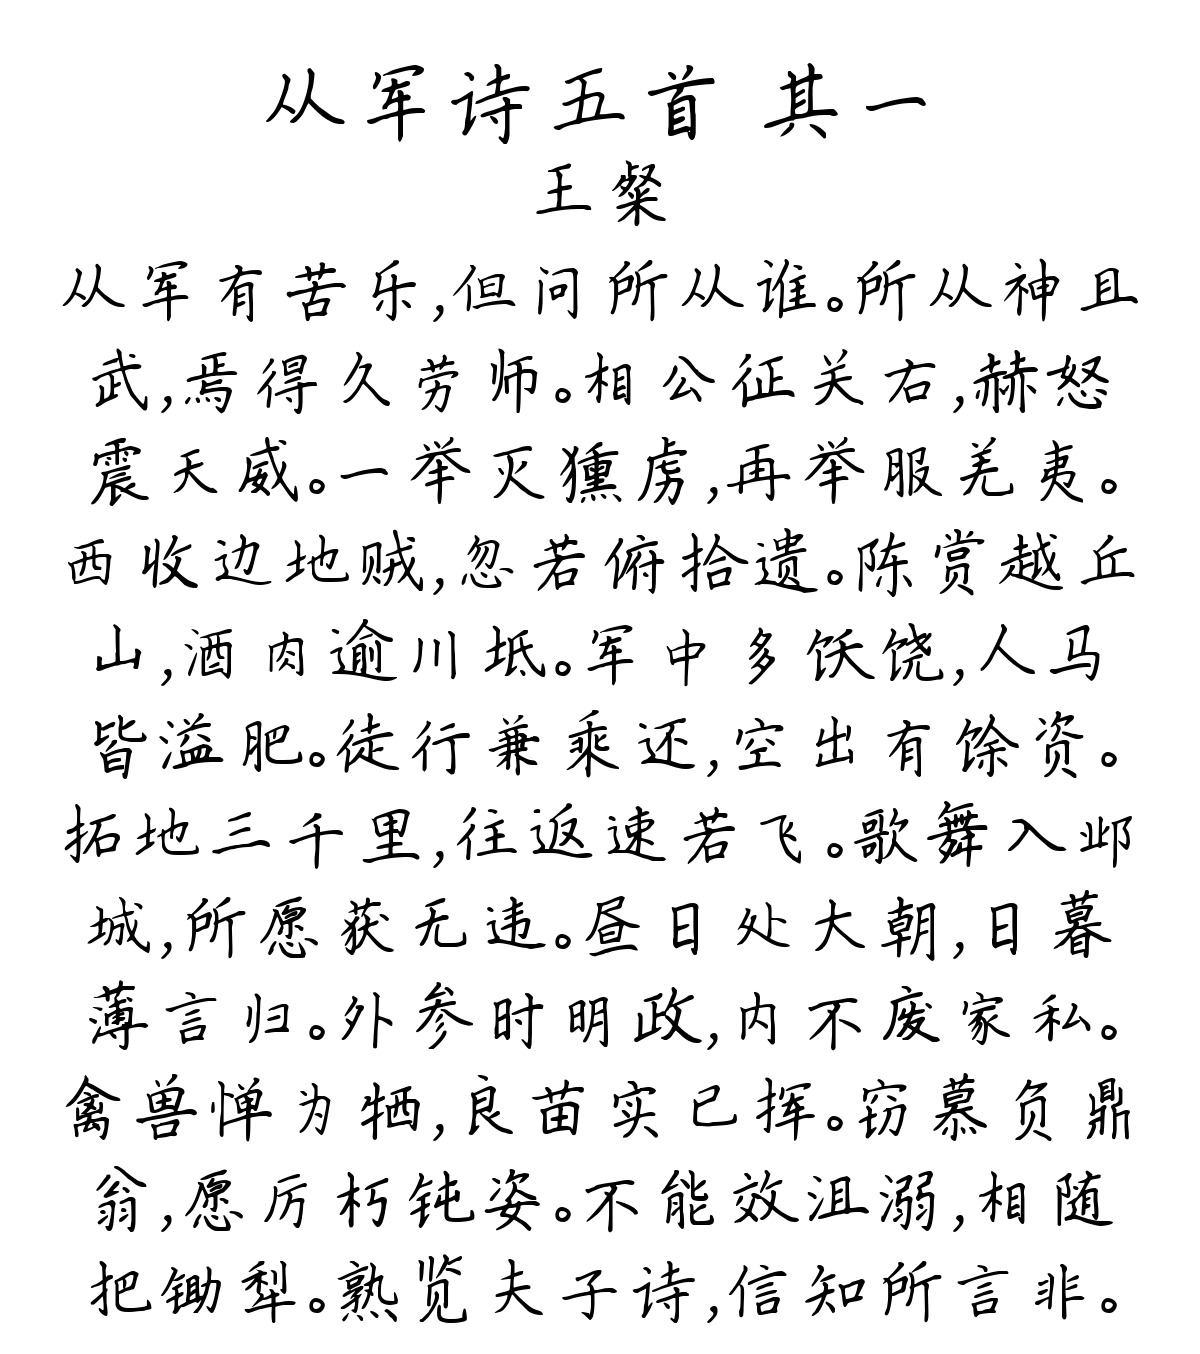 从军诗五首 其一
王粲
从军有苦乐,但问所从谁。所从神且
武,焉得久劳师。相公征关右,赫怒
震天威。一举灭獯虏,再举服羌夷。
西收边地贼,忽若俯拾遗。陈赏越丘
山,酒肉逾川坻。军中多饫饶,人马
皆溢肥。徒行兼乘还,空出有馀资。
拓地三千里,往返速若飞。歌舞入邺
城,所愿获无违。昼日处大朝,日暮
薄言归。外参时明政,内不废家私。
禽兽惮为牺,良苗实已挥。窃慕负鼎
翁,愿厉朽钝姿。不能效沮溺,相随
把锄犁。熟览夫子诗,信知所言非。